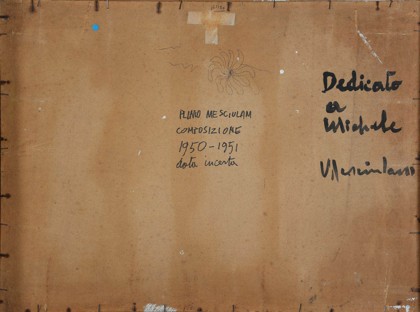 PLINIO MESCIULAM
COMPOSIZIONE
1950-1951
data incerta
Dedicato
a
Michele
Mesciulam